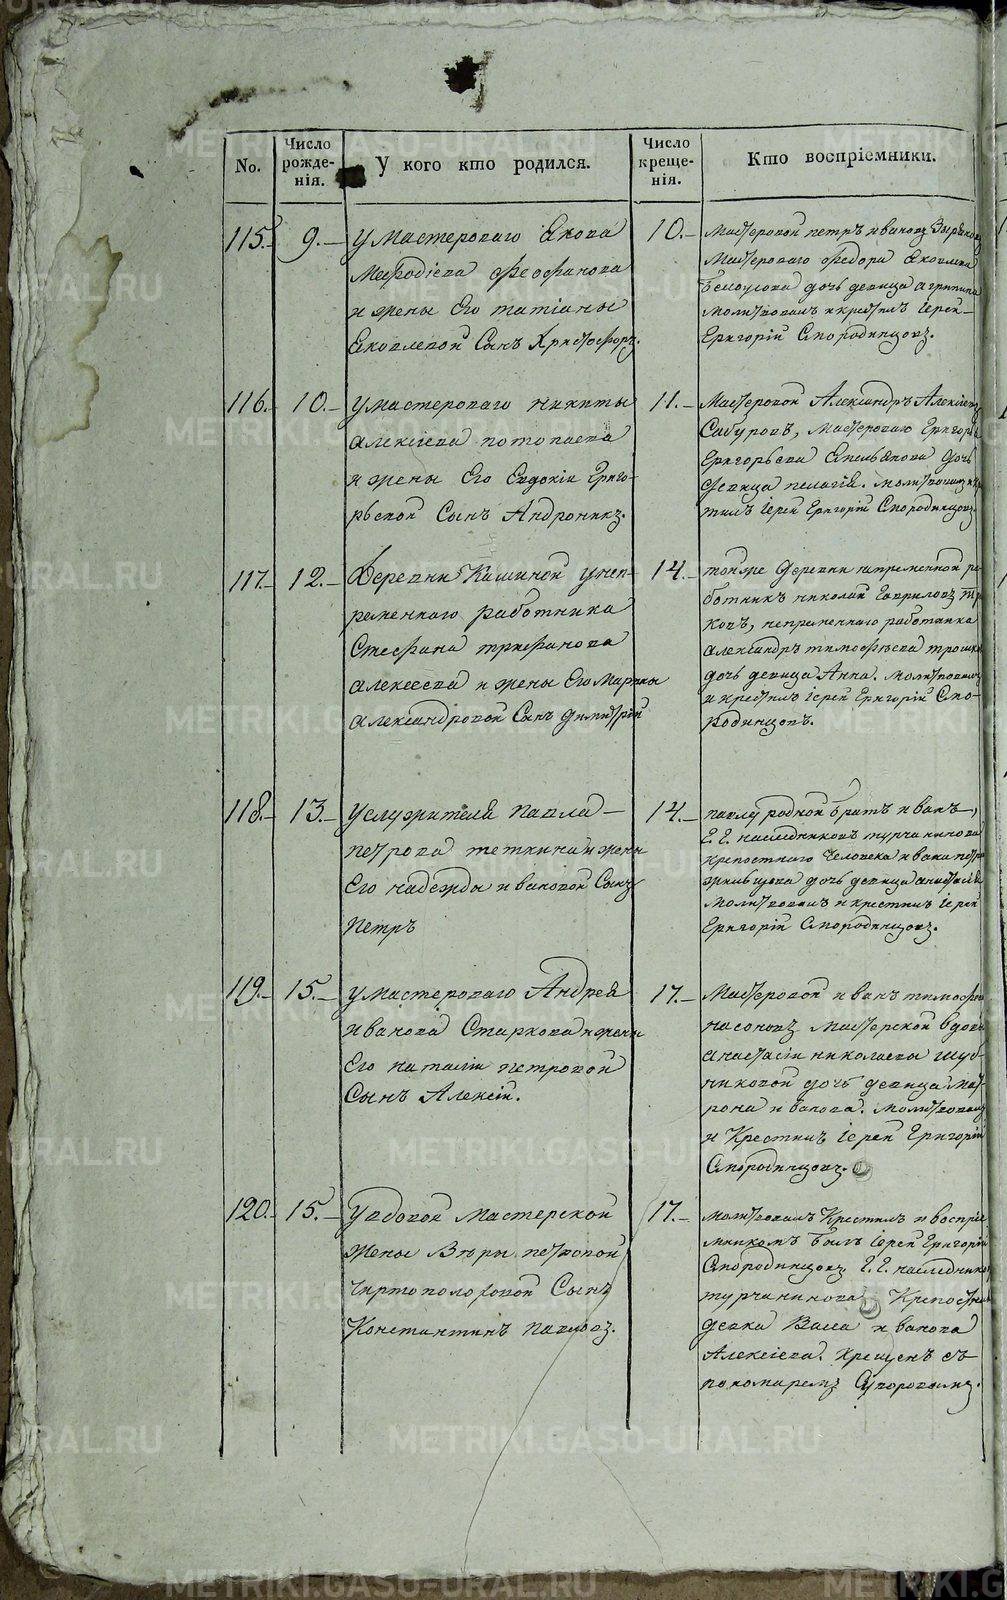 No.
Число
рожде-
нія.
У кого кто родился.
Число
креще-
нія.
Кто воспріемники.
115.- 9.-
у мастероваго Якова
Мефодіева Феофанова
и жены Его татіаны
Яковлевой Сынъ Христофоръ.
10.-
Мастеровой петръ ивановъ
Мастероваго Федора Яковлева
Белоусова дочь девица агрипина
молитвовалъ и крестилъ Іерей
Григорій Смородинцовъ.
116.- 10.-
у мастероваго никиты
алексіева потопаева
и жены Его Евдокіи Григо-
рьевой Сынъ Андроникъ.
11.-
Мастеровой Александръ Алексіевъ
Сабуровъ, мастероваго Григорья
Григорьева Емельянова дочь
девица пелагія. молитвовалъ и кре
тилъ Іерей Григорій Смородинцовъ.
117.- 12.-
Деревни Кашиной у неп-
ременнаго работника
Стефана трифанова
алексеева и жены Его Марины
александровой Сынъ димитрій
14.-
тойже деревни непременной ра-
ботникъ николай Гавриловъ
ковъ, непременнаго работника
александръ тимофеева
дочь девица Анна. молитвовалъ
и крестилъ Іерей Григорій Смо-
родинцовъ.
118.- 13.-
у служителя павла
петрова теткина и жены
Его надежды ивановой Сынъ
Петръ
14.-
павлу родной братъ иванъ,
Г. Г. наследниковъ турчанинова
крепостнаго Человека ивана петро
дочь девица анастасія
молитвовалъ и крестилъ Іерей
Григорій Смородинцовъ.
119.- 15.-
у мастероваго Андрея
иванова Старкова и жены
Его наталіи петровой
Сынъ Алексій.
17.-
Мастеровой иванъ тимофее
насоновъ мастерской вдовы
анастасіи николаевы шуб-
никовой дочь девица мат-
рона иванова. молитвовалъ
и Крестилъ Іерей Григорій
Смородинцовъ.
120.- 15.-
У вдовой мастерской
жены Веры петровой
Чиртополоховой Сынъ
Константинъ павловъ.
17.-
молитвовалъ Крестилъ и воспріе
мникомъ былъ Іерей Григорій
Смородинцовъ Г. Г. наследников
турчанинова Крепостная
девка Васса иванова
Алексіева. Крещенъ съ
пономаремъ Суворовымъ.
METRIKI.GASO-URAL.RU